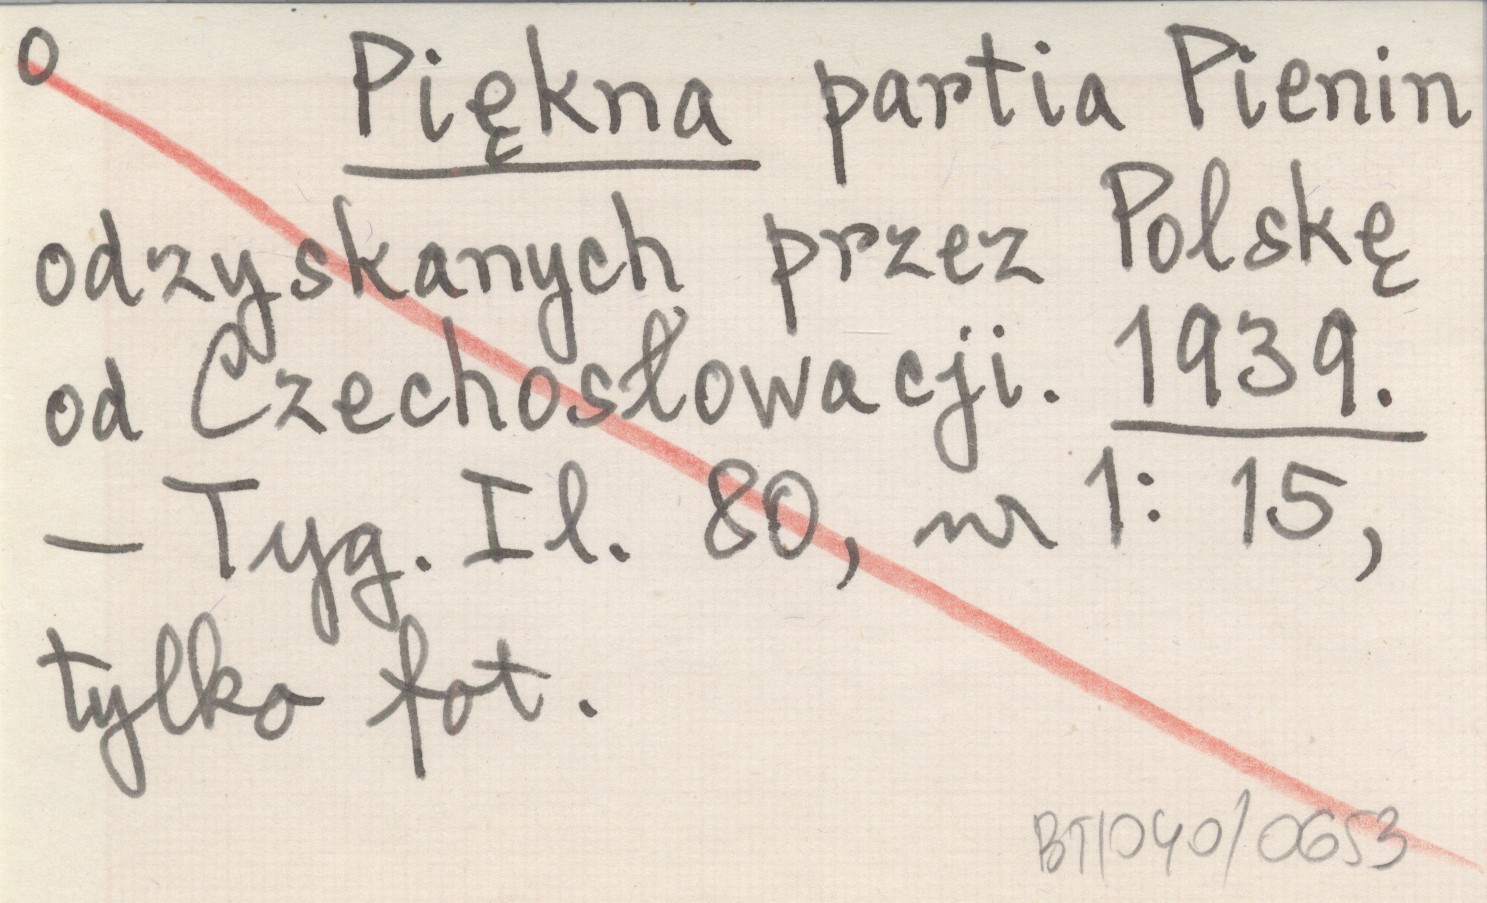 O Piękna partia Pienin
odzyskanych przez Polskę
od Czechosłowacji. 1939.
— Tyg. Il. 80, nr 1: 15,
tylko fot.
BT/040/0653